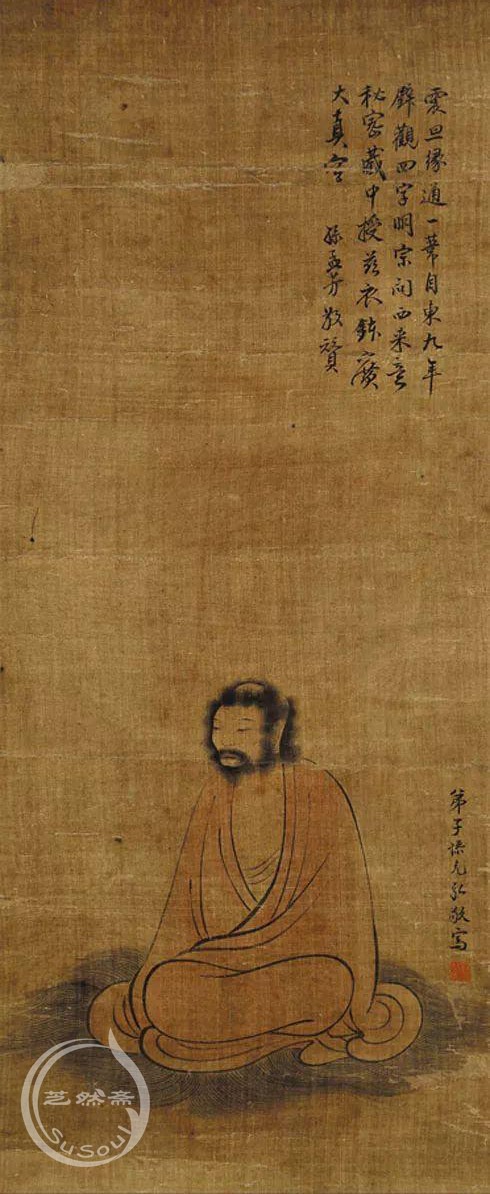 震旦緣通一葦自東九年
壁觀四字明宗問西来意
秘密藏中授茲衣鉢廣
大真空 孫孟芳敬贊
弟子孫克弘敬寫
芝然斋
SuSoul